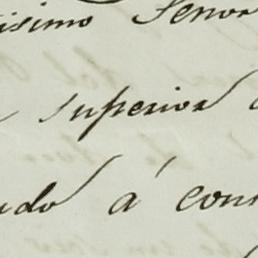 isimo Señor
superior
ndo á con